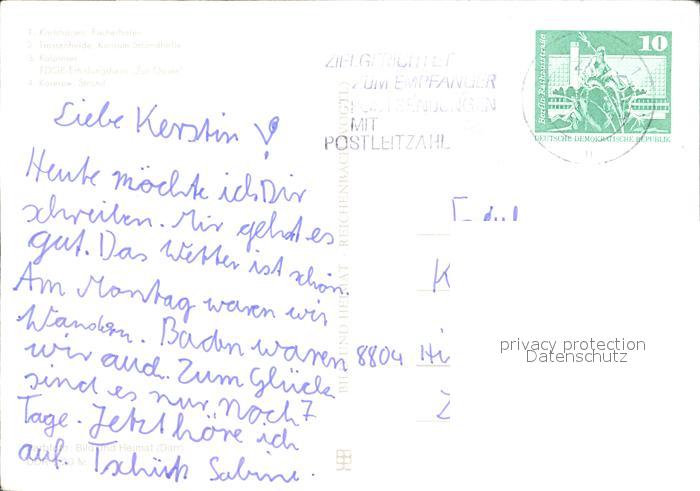 1. Karlshagen, Fischerhafen
2. Trassenheide, Konsum Strandhalle
3. Kölpinsee,
FDGB-Erholungsheim „Zur Ostsee“
4. Koserow, Strand
ZIELGERICHTET
ZUM EMPFÄNGER
POSTSENDUNGEN
MIT
POSTLEITZAHL
10
Berlin, Rathausstraße
DEUTSCHE DEMOKRATISCHE REPUBLIK
Liebe Kerstin!
Heute möchte ich Dir
schreiben. Mir geht es
gut. Das Wetter ist schön.
Am Montag waren wir
Wandern. Baden waren
wir auch. Zum Glück
sind es nur noch 7
Tage. Jetzt höre ich
auf. Tschüß Sabine.
8804 Hi
BILD UND HEIMAT · REICHENBACH (VOGTL)
Bild und Heimat
privacy protection
Datenschutz